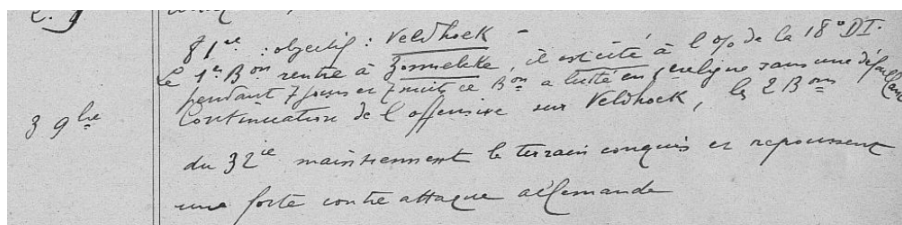 81re : objectif : Veldhoek -
Le 1er Bon rentre à Zonnebeke, il est cité à l'O/ de la 18e DI.
pendant 7 jours et 7 nuits ce Bon a lutté en 1ere ligne sans une défaillance
3 9bre Continuation de l'offensive sur Veldhoek, les 2 Bons
du 32ie maintiennent le terrain conquis et repoussent
une forte contre attaque allemande